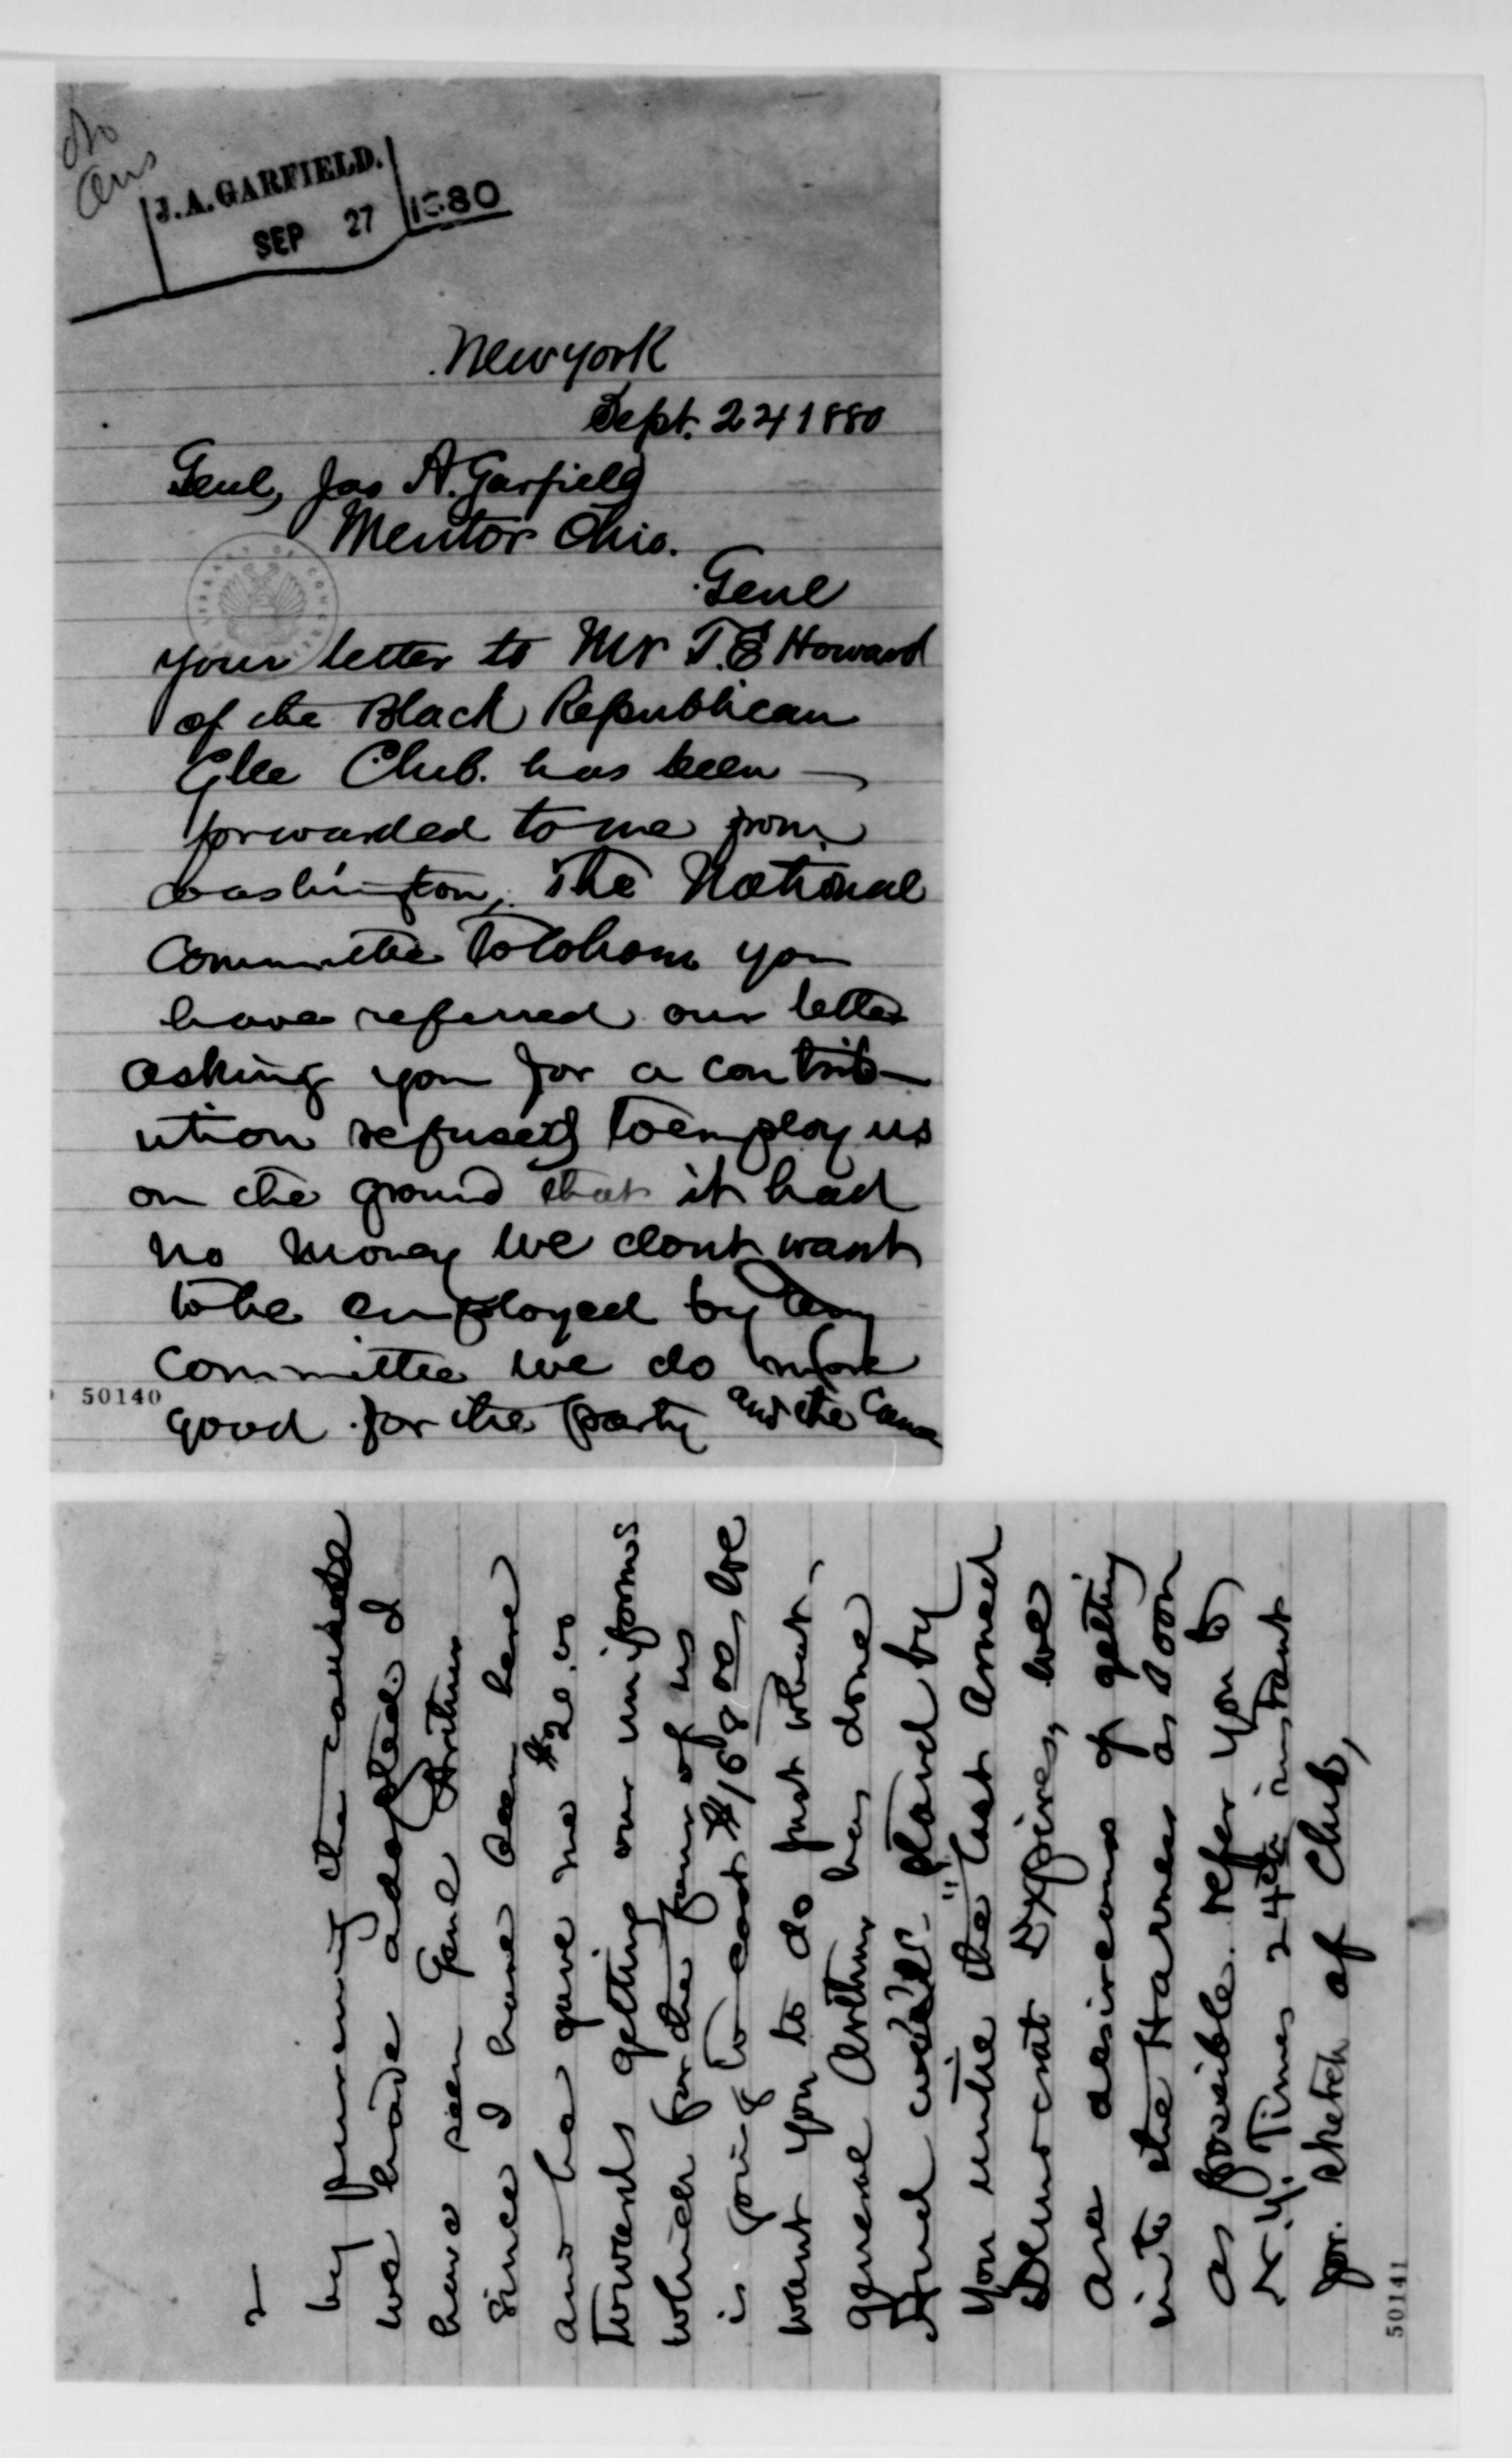 No
Ans
J.A. GARFIELD.
SEP 27 1880
New york
Sept. 24 1880
Genl, Jas A. Garfield
Mentor Ohio.
LIBRARY OF CONGRESS
Genl
your letter to Mr T. E Howard
of the Black Republican
Glee Club. has been
forwarded to me from
Washington, The National
Committee to whom you
have referred our letter
asking you for a contrib-
ution refused to employ us
on the ground that it had
no money we dont want
to be employed by any
committee we do more
good for the party and the cause
50140
2
by pursuing the course
we have adopted. I
have seen Genl Arthur
since I have been here
and he gave me $20.00
towards getting our uniforms
which for the four of us
is going to cost $168 00, we
want you to do just what
general Arthur has done
And we'll stand by
you until the "last armed
Democrat Expires, we
are desireous of getting
into the Harness as soon
as possible. refer you to
N.Y. Times 24th instant
for. sketch of Club,
50141